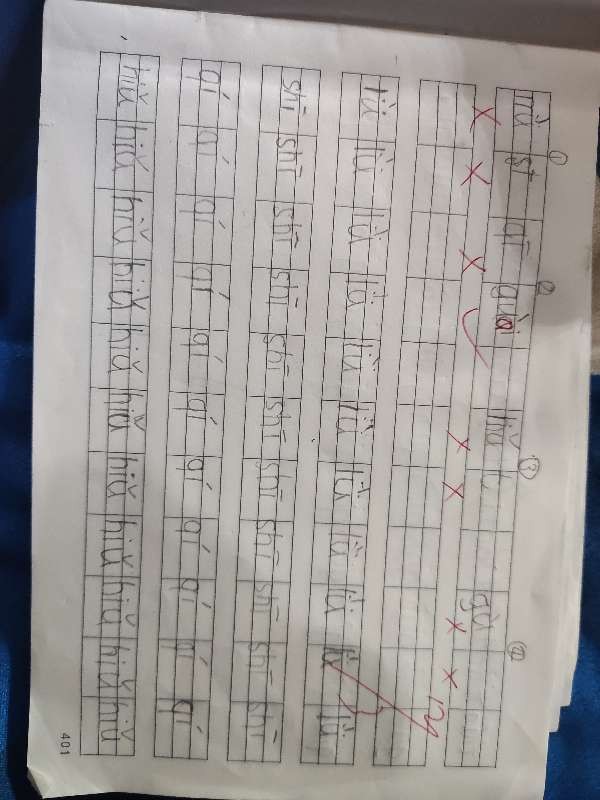 ① ② ③ ④
qī guài
lǜ lǜ lǜ lǜ lǜ lǜ lǜ lǜ lǜ lǜ lǜ
shī shī shī shī shī shī shī shī shī shī shī
qí qí qí qí qí qí qí qí qí qí qí
hiǔ hiǔ hiǔ hiǔ hiǔ hiǔ hiǔ hiǔ hiǔ hiǔ hiǔ
401